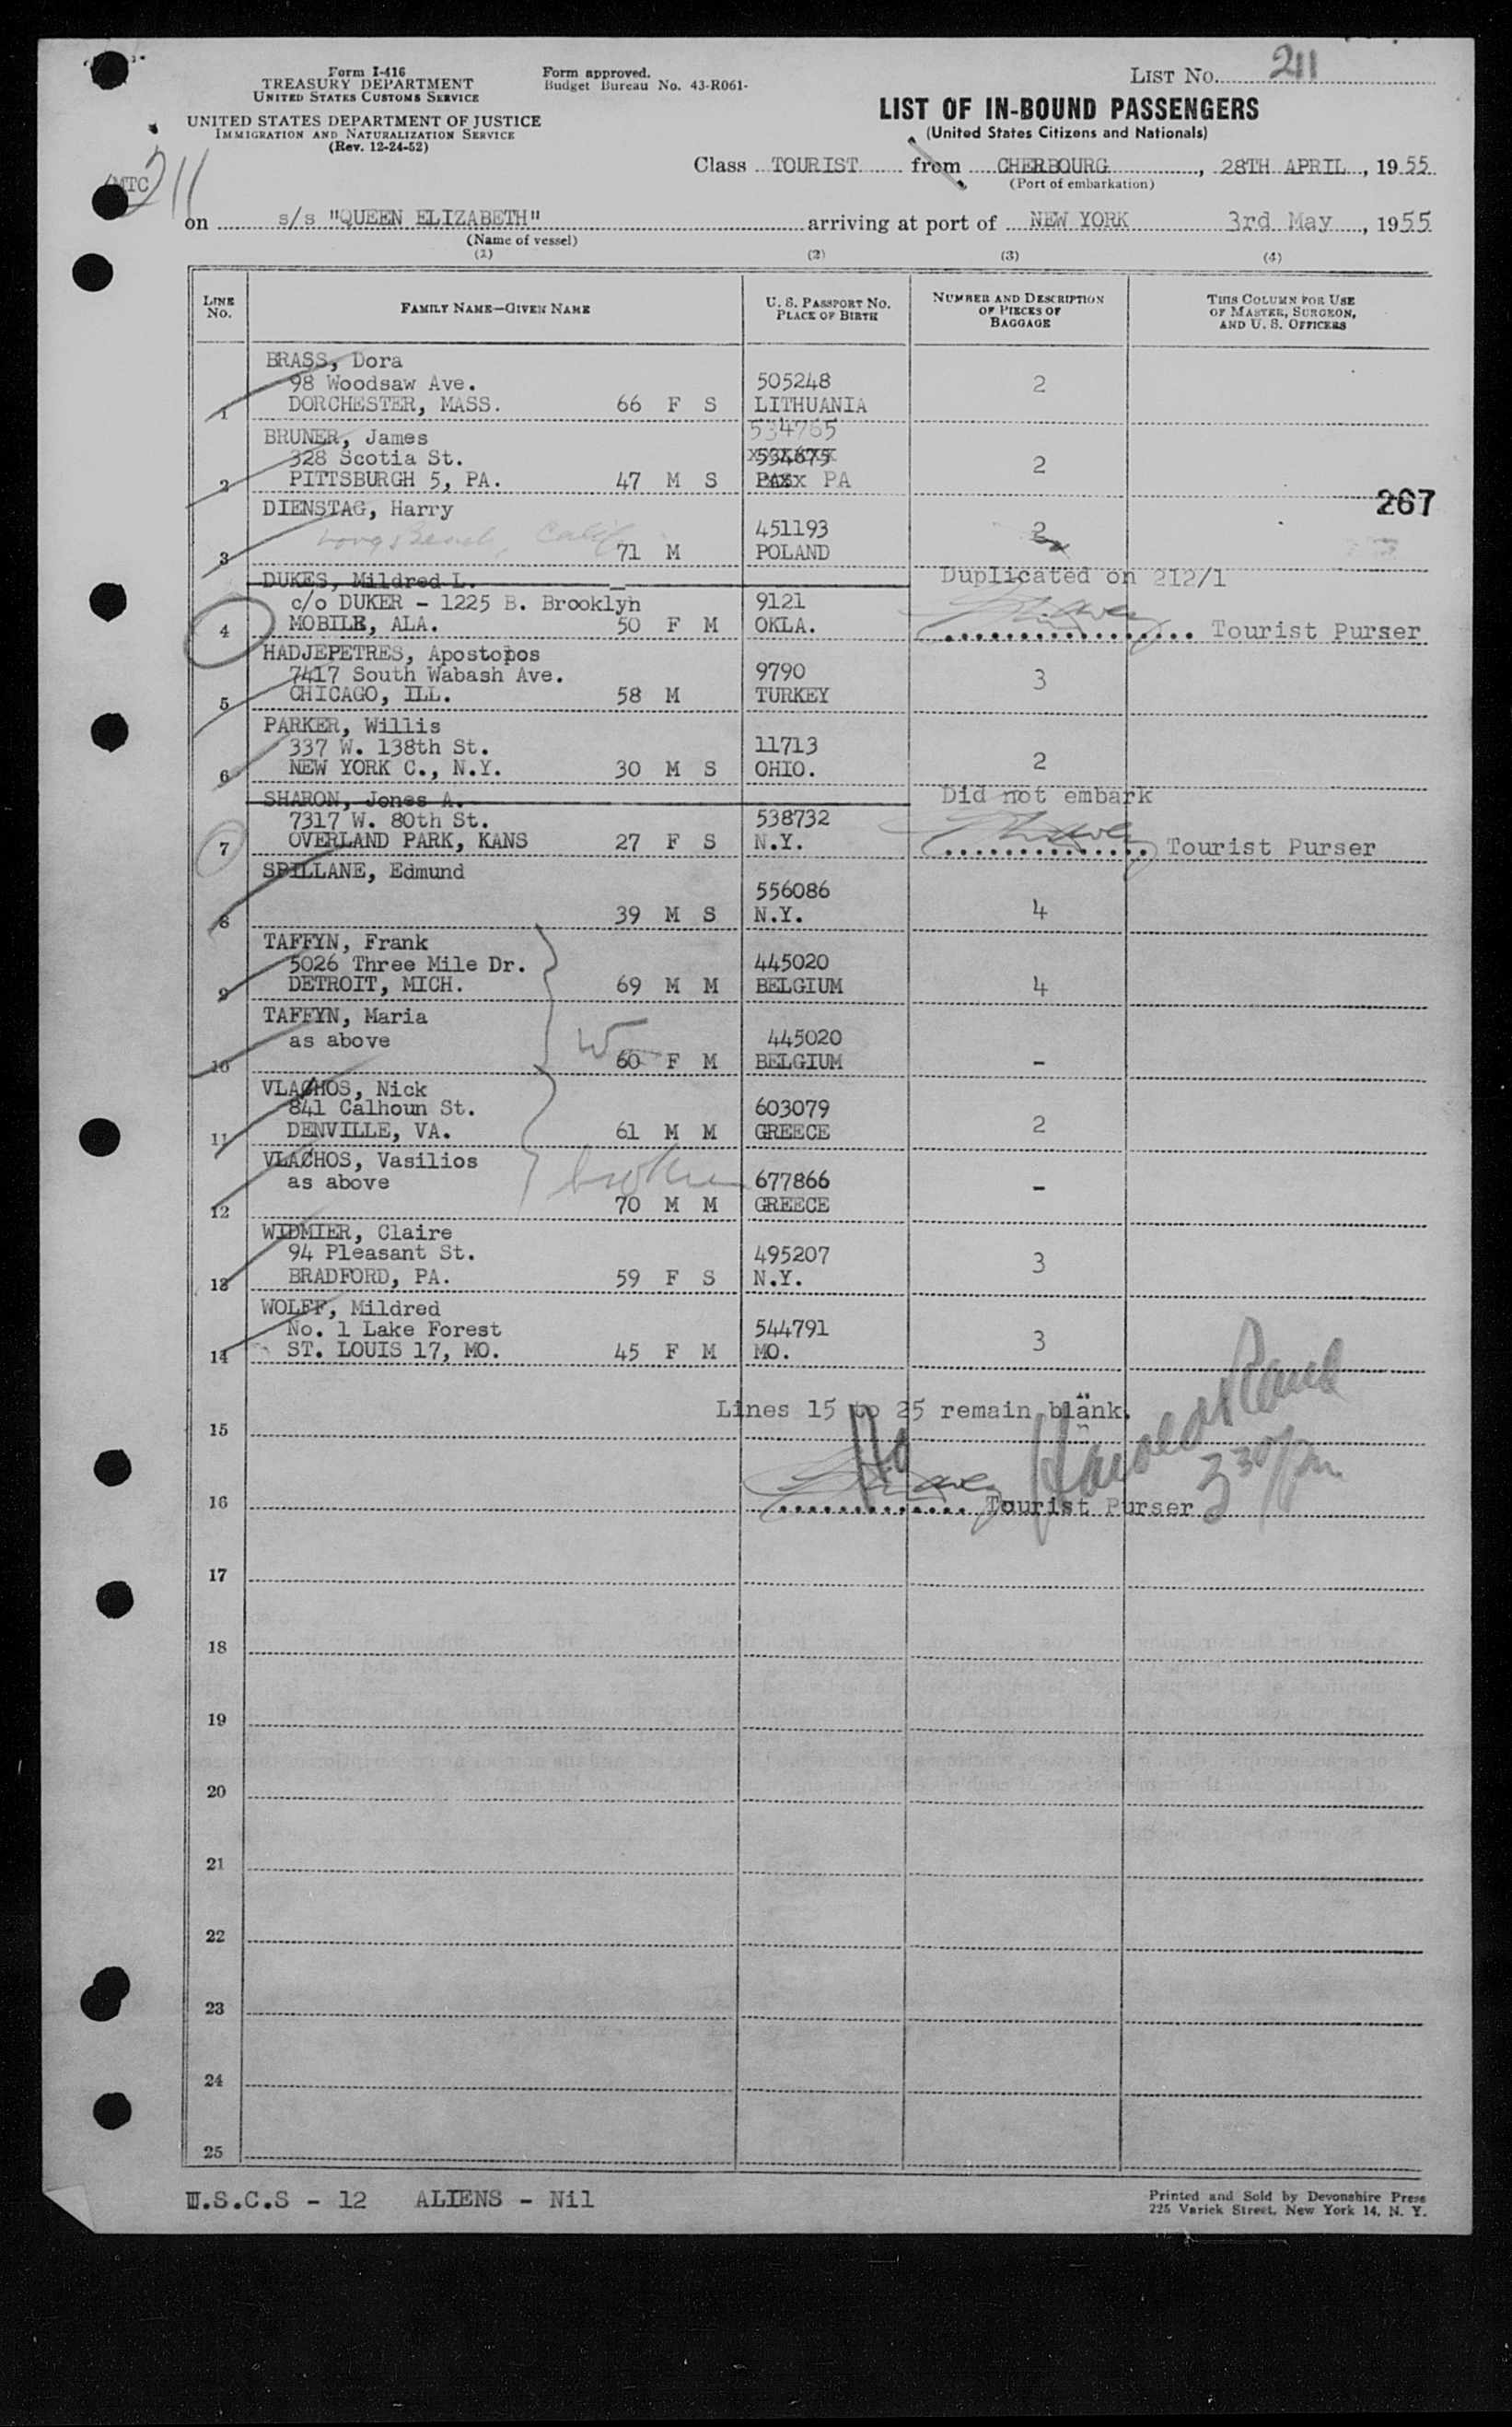 Form I-416
TREASURY DEPARTMENT
UNITED STATES CUSTOMS SERVICE
UNITED STATES DEPARTMENT OF JUSTICE
IMMIGRATION AND NATURALIZATION SERVICE
(Rev. 12-24-52)
Form approved.
Budget Bureau No. 43-R061-
LIST No. 211
LIST OF IN-BOUND PASSENGERS
(United States Citizens and Nationals)
MTC 211
Class TOURIST from CHERBOURG, 28TH APRIL, 1955
(Port of embarkation)
on s/s "QUEEN ELIZABETH" arriving at port of NEW YORK 3rd May, 1955
(Name of vessel)
(1) (2) (3) (4)
LINE No. FAMILY NAME—GIVEN NAME U. S. PASSPORT No. PLACE OF BIRTH NUMBER AND DESCRIPTION OF PIECES OF BAGGAGE THIS COLUMN FOR USE OF MASTER, SURGEON, AND U. S. OFFICERS
BRASS, Dora
98 Woodsaw Ave. 505248 2
1 DORCHESTER, MASS. 66 F S LITHUANIA
BRUNER, James 534765
328 Scotia St. 534675 2
2 PITTSBURGH 5, PA. 47 M S PA
267
DIENSTAG, Harry
Long Beach, Calif 451193 2
3 71 M POLAND
DUKES, Mildred L. Duplicated on 212/1
c/o DUKER - 1225 B. Brooklyn 9121
4 MOBILE, ALA. 50 F M OKLA. Tourist Purser
HADJEPETRES, Apostopos
7417 South Wabash Ave. 9790 3
5 CHICAGO, ILL. 58 M TURKEY
PARKER, Willis
337 W. 138th St. 11713 2
6 NEW YORK C., N.Y. 30 M S OHIO.
SHARON, Jones A. Did not embark
7317 W. 80th St. 538732
7 OVERLAND PARK, KANS 27 F S N.Y. Tourist Purser
SPILLANE, Edmund
556086 4
8 39 M S N.Y.
TAFFYN, Frank
5026 Three Mile Dr. 445020 4
9 DETROIT, MICH. 69 M M BELGIUM
TAFFYN, Maria
as above 445020 -
10 60 F M BELGIUM
VLACHOS, Nick
841 Calhoun St. 603079 2
11 DENVILLE, VA. 61 M M GREECE
VLACHOS, Vasilios
as above 677866 -
12 70 M M GREECE
WIDMIER, Claire
94 Pleasant St. 495207 3
13 BRADFORD, PA. 59 F S N.Y.
WOLFF, Mildred
No. 1 Lake Forest 544791 3
14 ST. LOUIS 17, MO. 45 F M MO.
Lines 15 to 25 remain blank.
15
16 Tourist Purser 3 30 pm
17
18
19
20
21
22
23
24
25
U.S.C.S - 12 ALIENS - Nil
Printed and Sold by Devonshire Press
225 Varick Street, New York 14, N. Y.